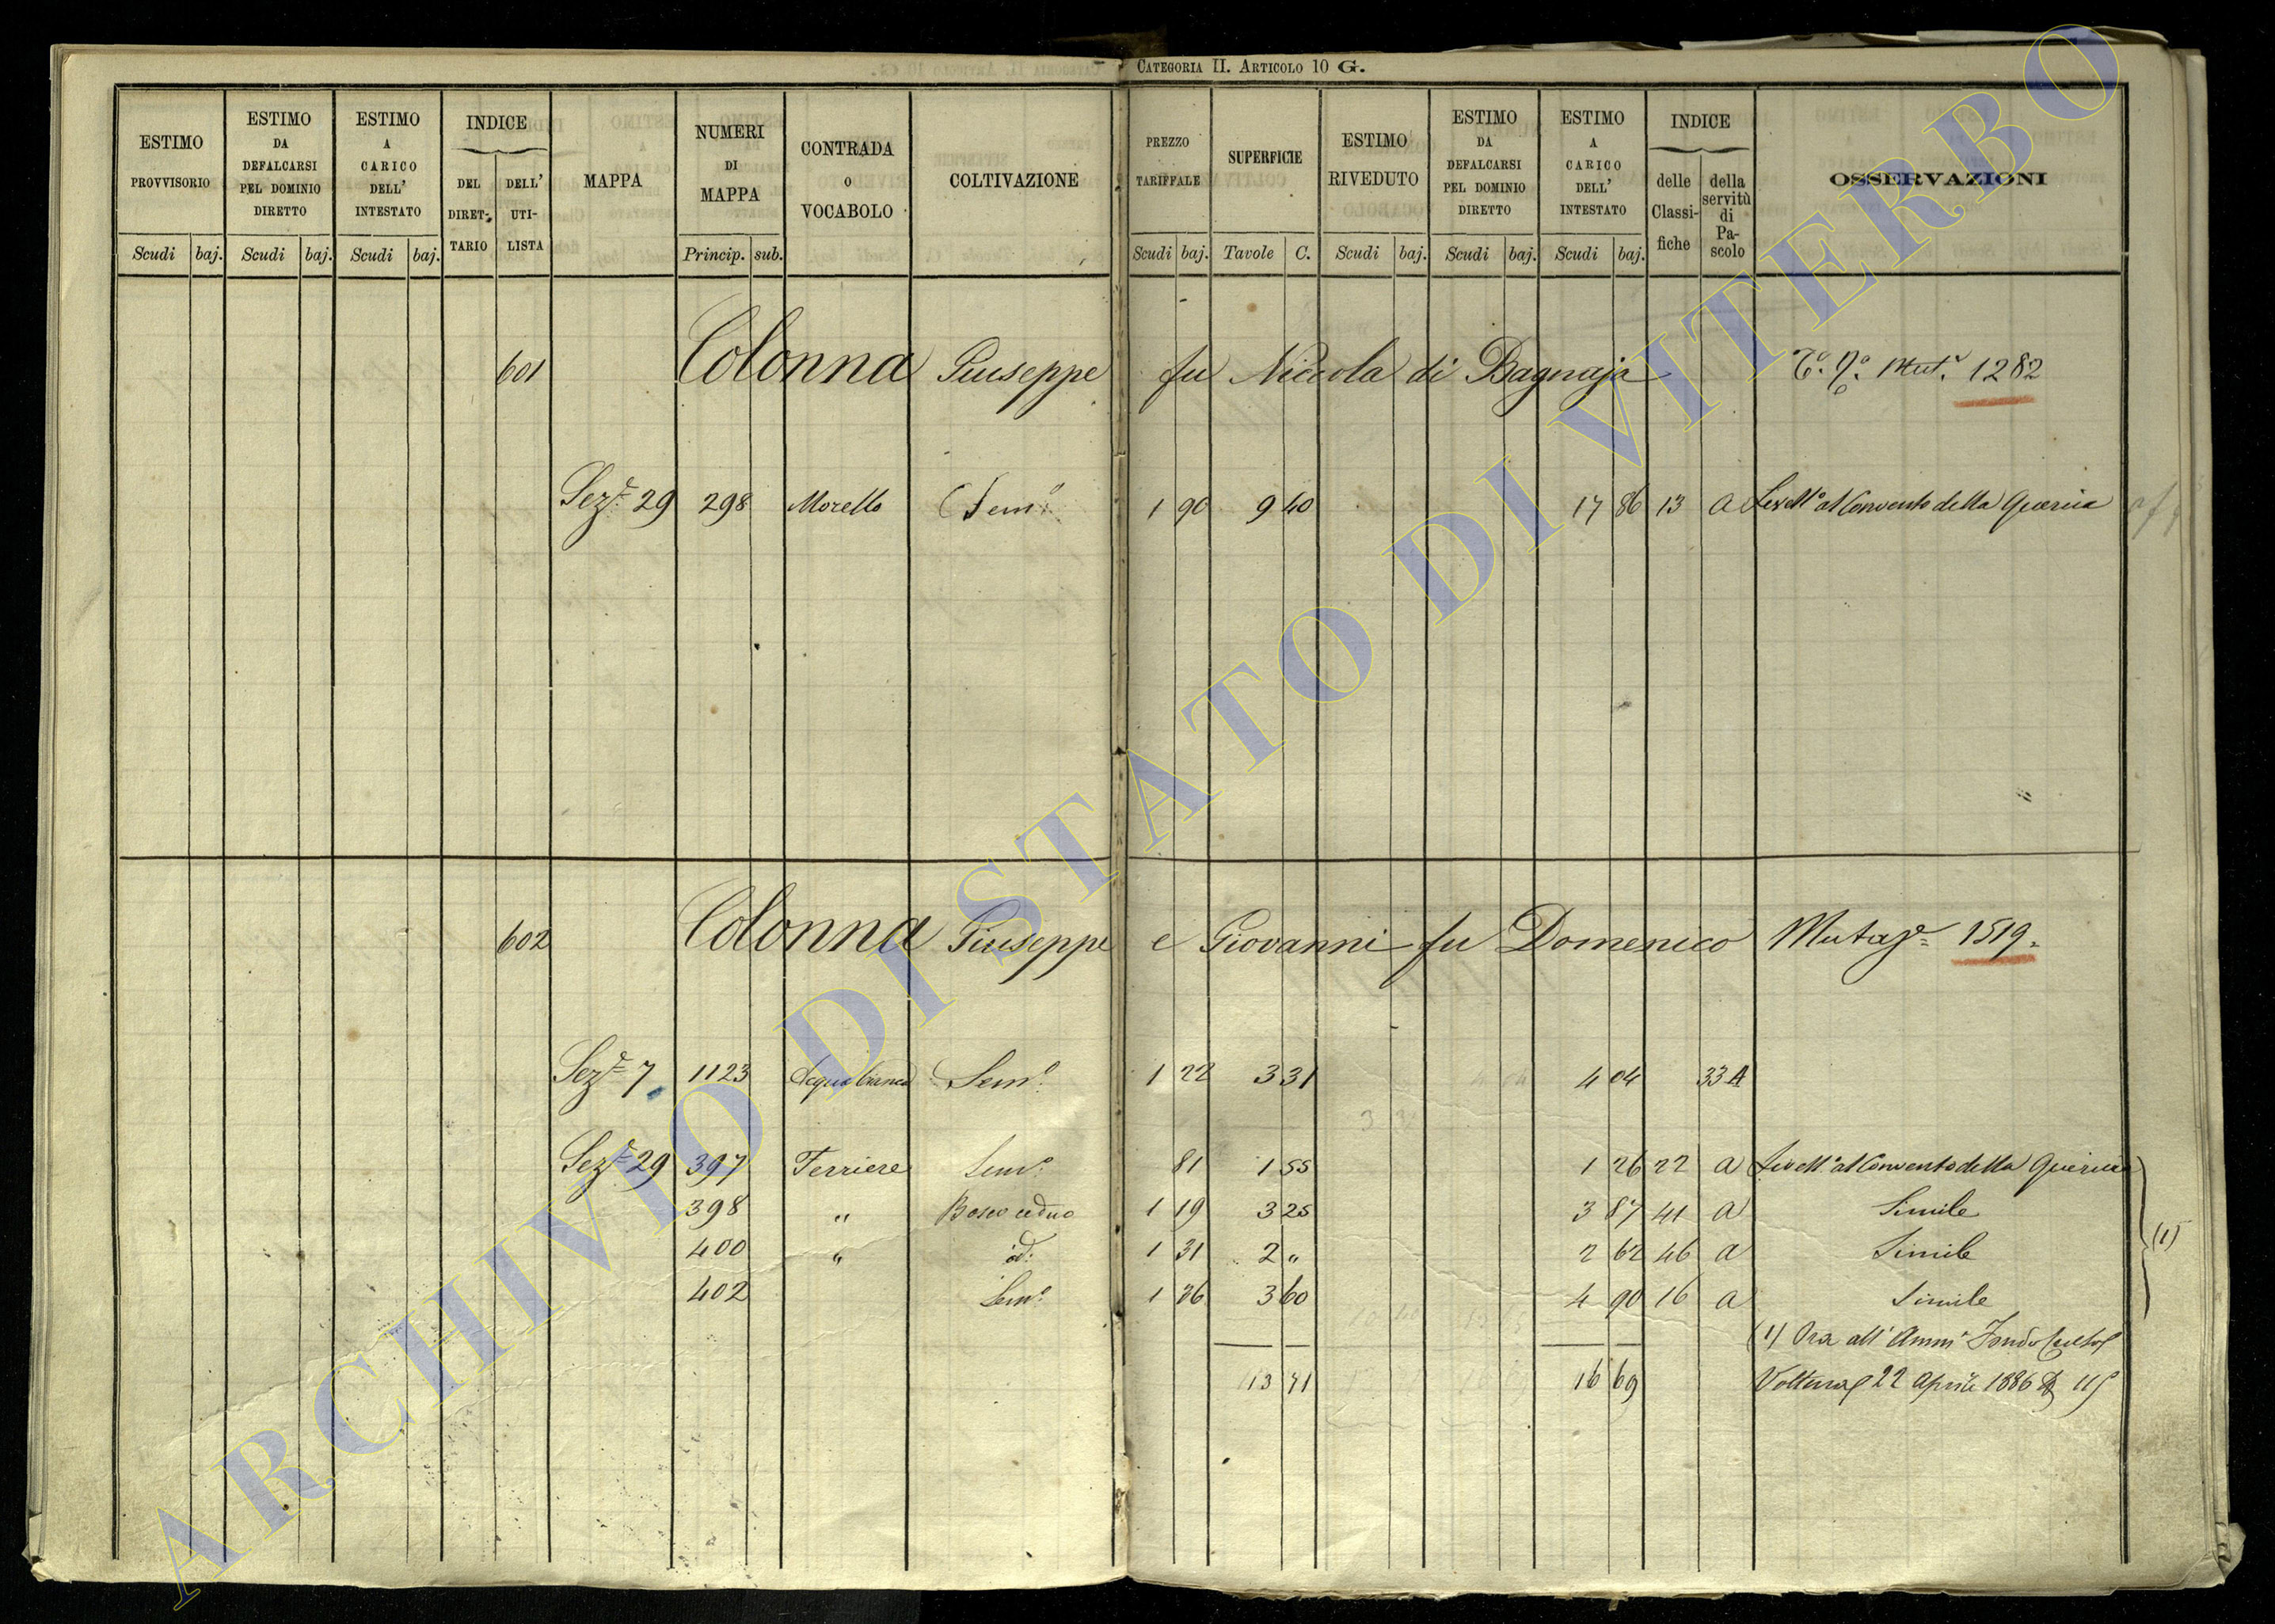 CATEGORIA II. ARTICOLO 10 G.
ESTIMO PROVVISORIO
ESTIMO DA DEFALCARSI PEL DOMINIO DIRETTO
ESTIMO A CARICO DELL' INTESTATO
INDICE
DEL DIRETTARIO
DELL' UTILISTA
MAPPA
NUMERI DI MAPPA
CONTRADA O VOCABOLO
COLTIVAZIONE
PREZZO TARIFFALE
SUPERFICIE
ESTIMO RIVEDUTO
ESTIMO DA DEFALCARSI PEL DOMINIO DIRETTO
ESTIMO A CARICO DELL' INTESTATO
INDICE
delle Classifiche
della servitù di Pascolo
OSSERVAZIONI
Scudi baj. Scudi baj. Scudi baj. Princip. sub. Scudi baj. Tavole C. Scudi baj. Scudi baj. Scudi baj.
601 Colonna Giuseppe fu Niccola di Bagnaja Mut. 1282
Sez.e 29 298 Morello Sem.o 1 90 9 40 17 86 13 A Livell.o al Convento della Quercia
602 Colonna Giuseppe e Giovanni fu Domenico Mutaz.e 1519
Sez.e 7 1123 Acqua bianca Sem.o 1 22 3 31 4 04 33 A
Sez.e 29 397 Ferriere Sem.o 81 1 55 1 26 22 A Livell.o al Convento della Quercia
398 " Bosco ceduo 1 19 3 25 3 87 41 A Simile
400 " id. 1 31 2 " 2 62 46 A Simile (1)
402 Sem.o 1 36 3 60 4 90 16 A Simile
(1) Ora all' Amm.e Fondo Culto
13 71 16 69 Voltura 22 Aprile 1886
ARCHIVIO DI STATO DI VITERBO